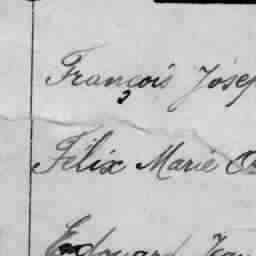 François Josep
Félix Marie
Edouard Jean